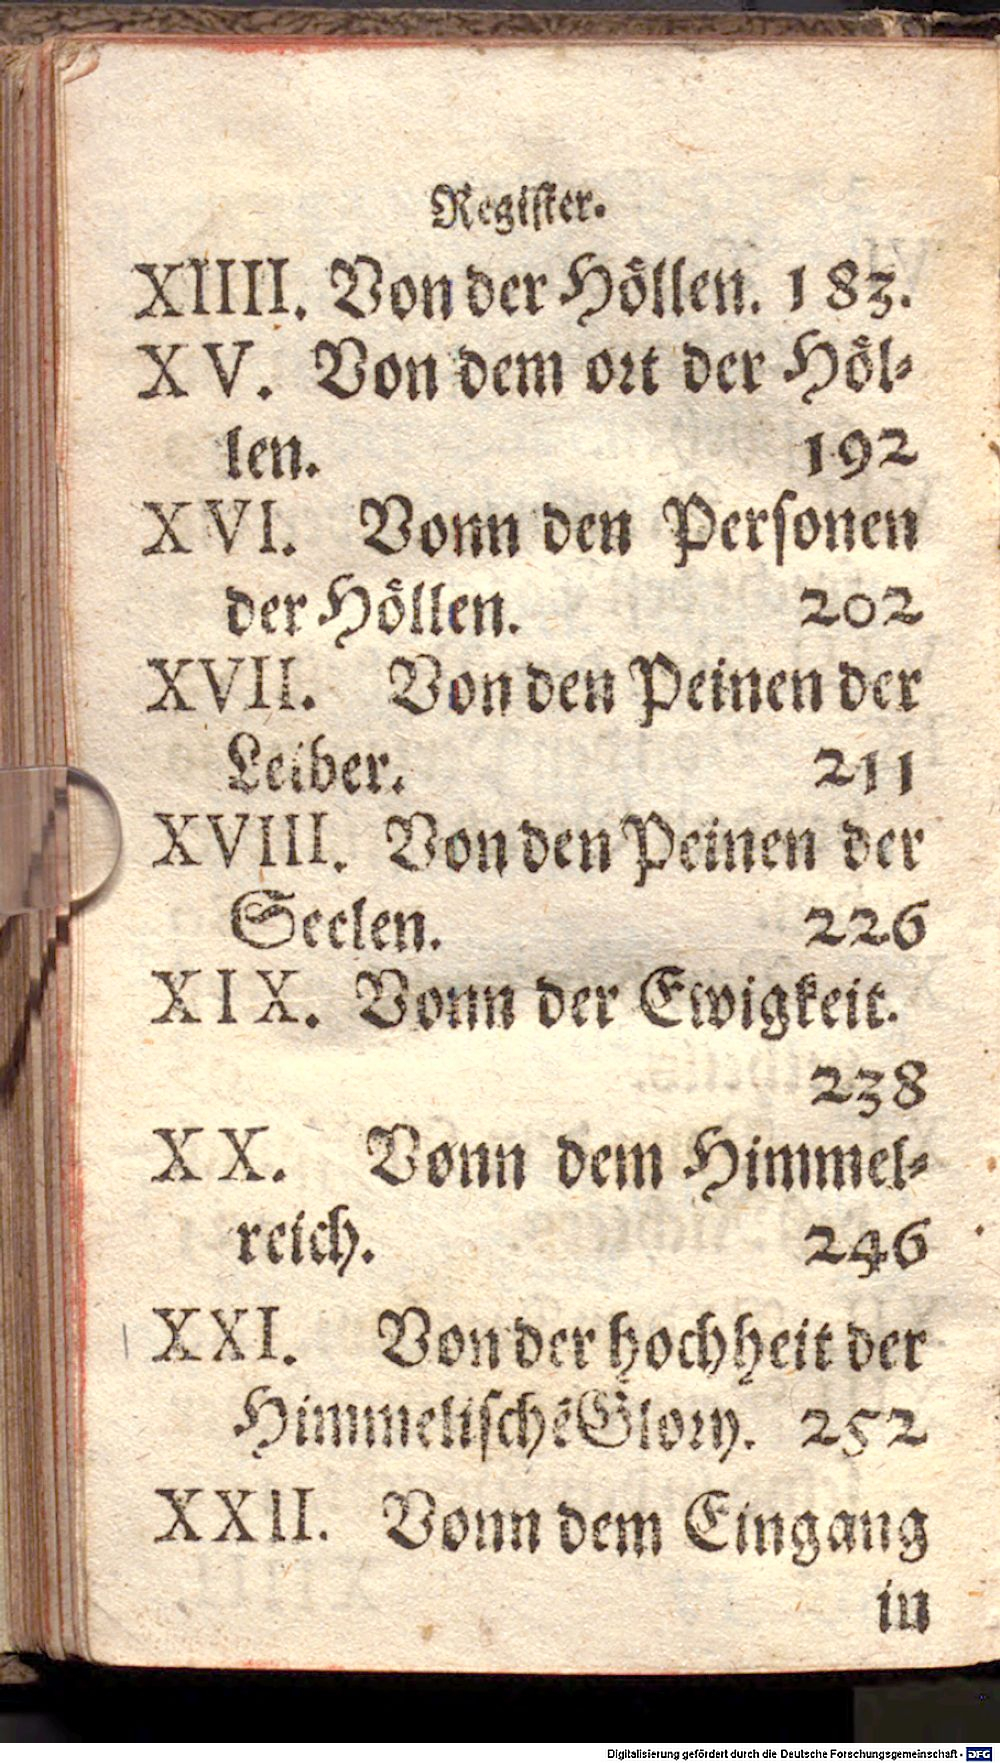 Regiſter.
XIIII. Von der Höllen. 183.
XV. Von dem ort der Höl-
len. 192
XVI. Vonn den Perſonen
der Höllen. 202
XVII. Von den Peinen der
Leiber. 211
XVIII. Von den Peinen der
Seelen. 226
XIX. Vonn der Ewigkeit.
238
XX. Vonn dem Himmel-
reich. 246
XXI. Von der hochheit der
Himmeliſchẽ Glory. 252
XXII. Vonn dem Eingang
in
Digitalisierung gefördert durch die Deutsche Forschungsgemeinschaft - DFG